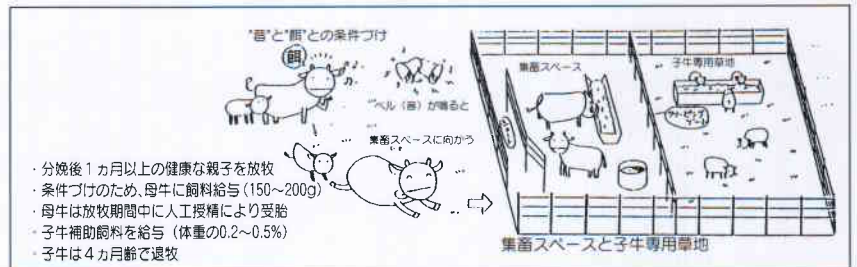 "音"と"餌"との条件づけ
餌
ベル（音）が鳴ると
集畜スペースに向かう
・分娩後1ヵ月以上の健康な親子を放牧
・条件づけのため、母牛に飼料給与（150〜200g）
・母牛は放牧期間中に人工授精により受胎
・子牛補助飼料を給与（体重の0.2〜0.5%）
・子牛は4ヵ月齢で退牧
集畜スペース
子牛専用草地
集畜スペースと子牛専用草地